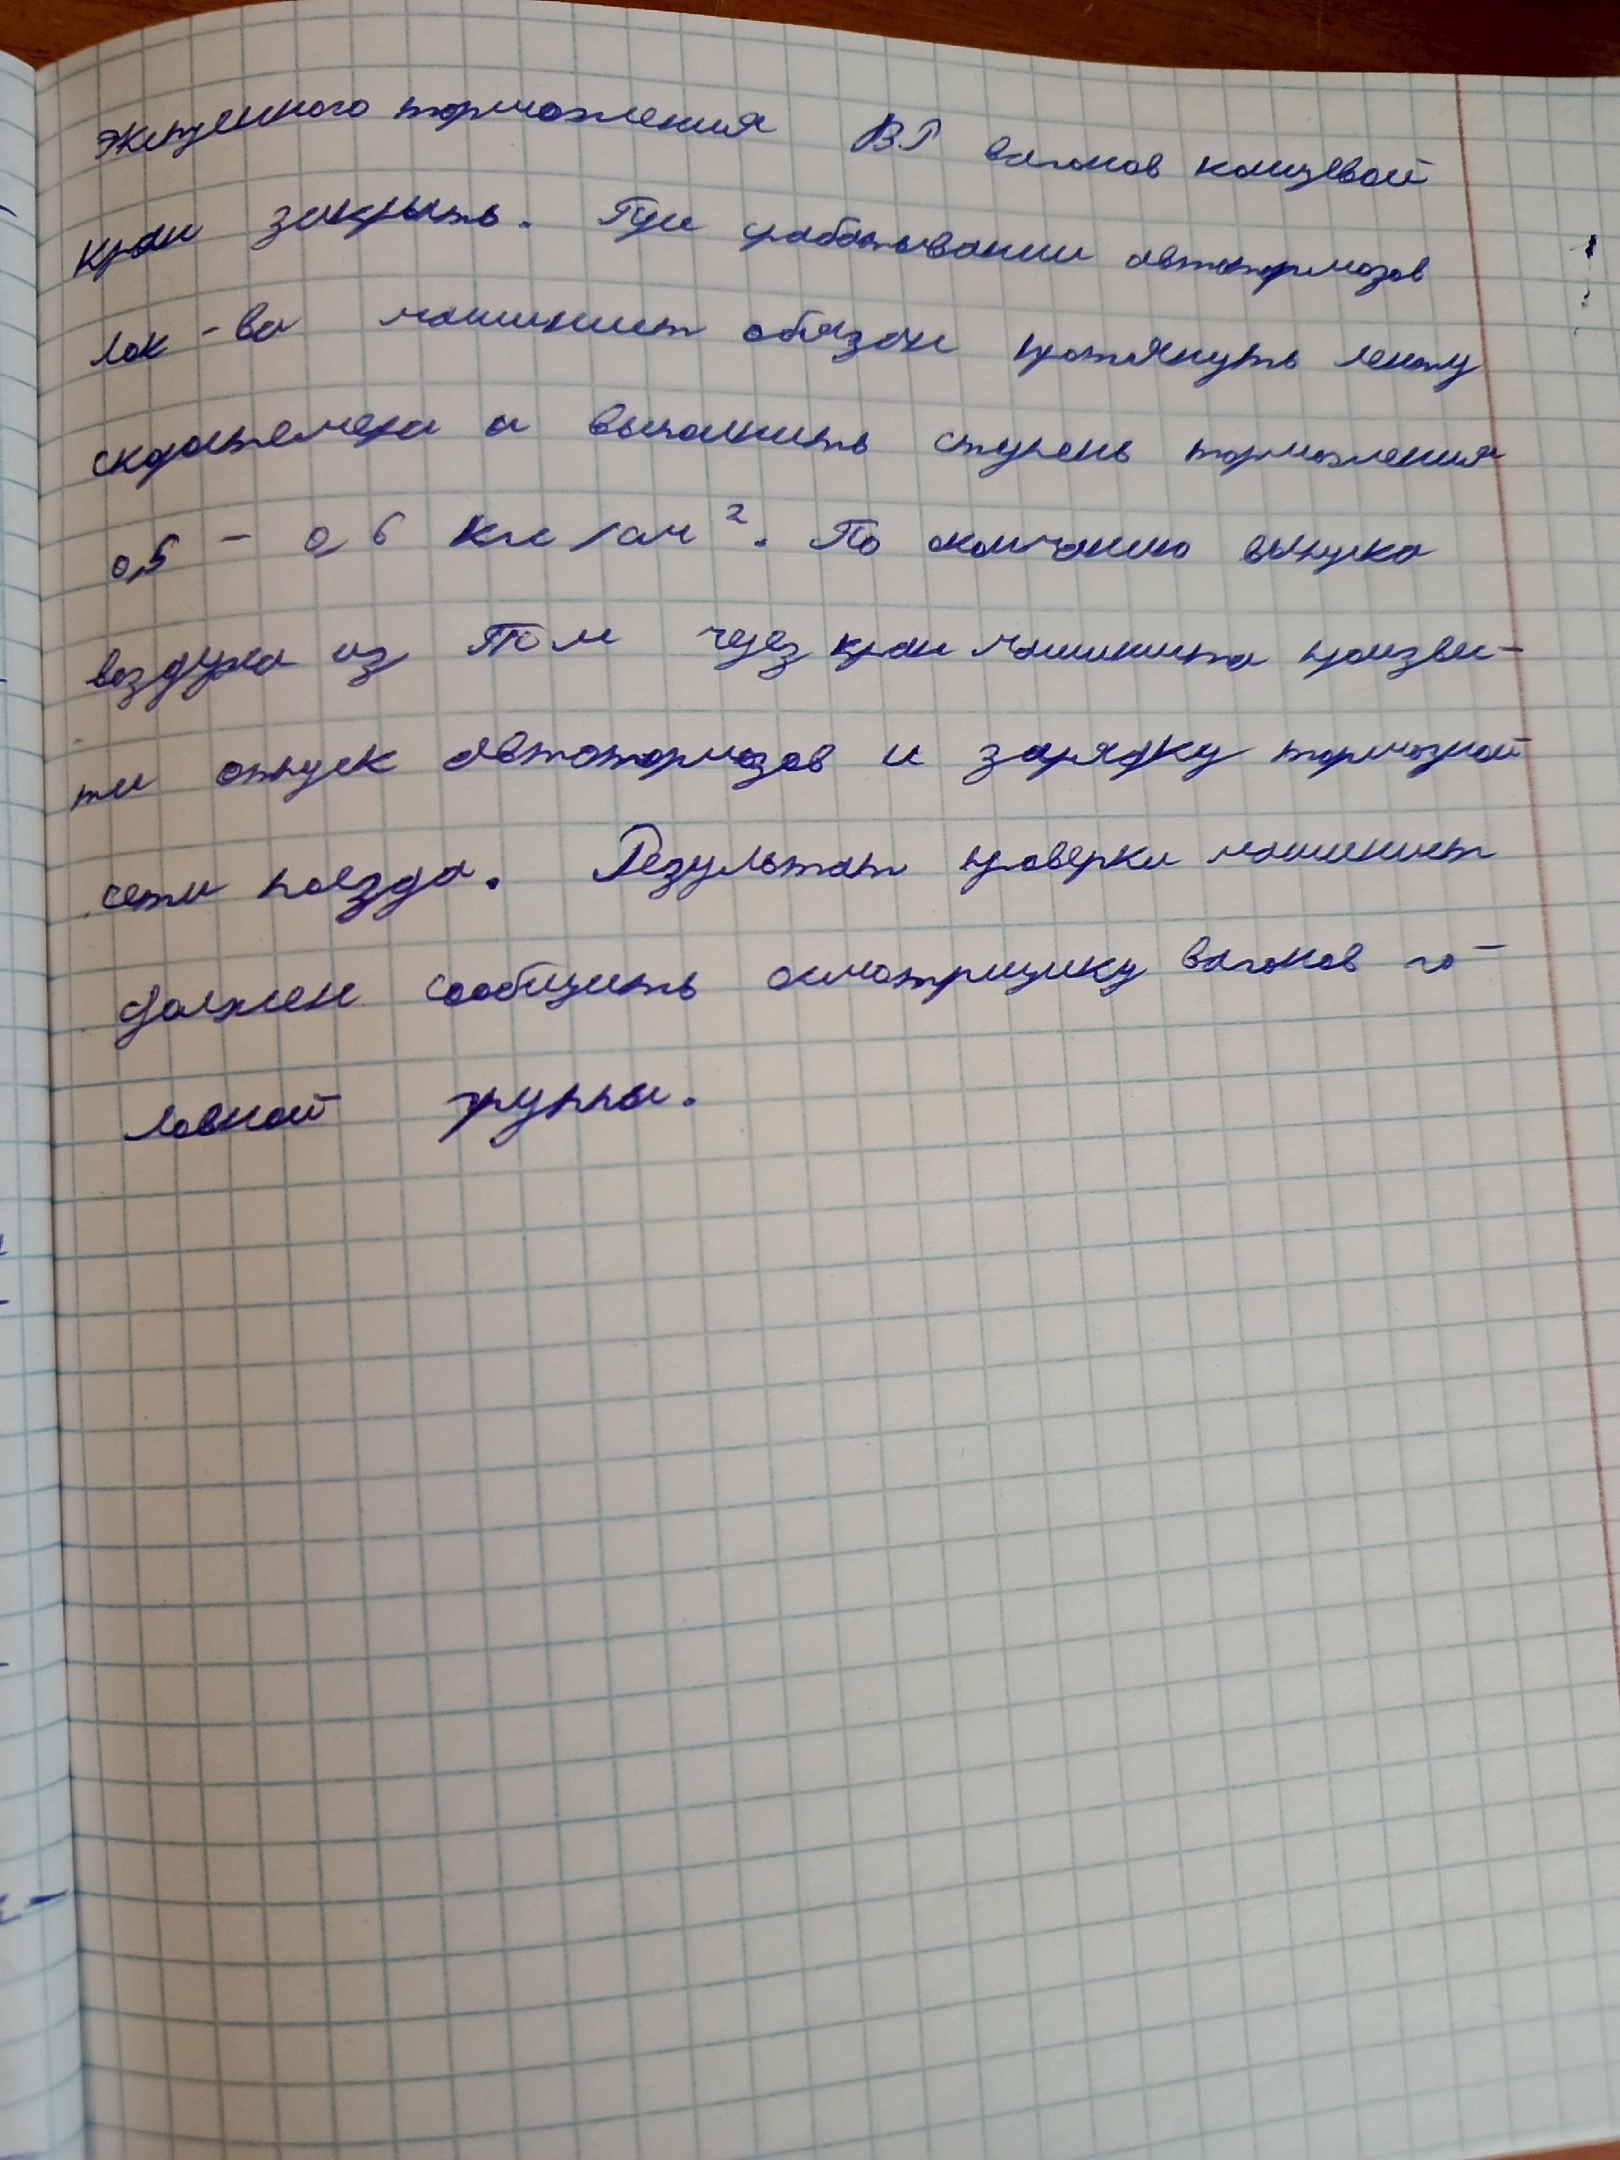 экстренного торможения ВР вагонов концевой
кран закрыть. При срабатывании автотормозов
лок-ва машинист обязан протянуть ленту
скоростемера и выполнить ступень торможения
0,5 - 0,6 кгс/см². По окончанию выпуска
воздуха из ТМ через кран машиниста произве-
ти отпуск автотормозов и зарядку тормозной
сети поезда. Результат проверки машинист
должен сообщить осмотрщику вагонов го-
ловной группы.